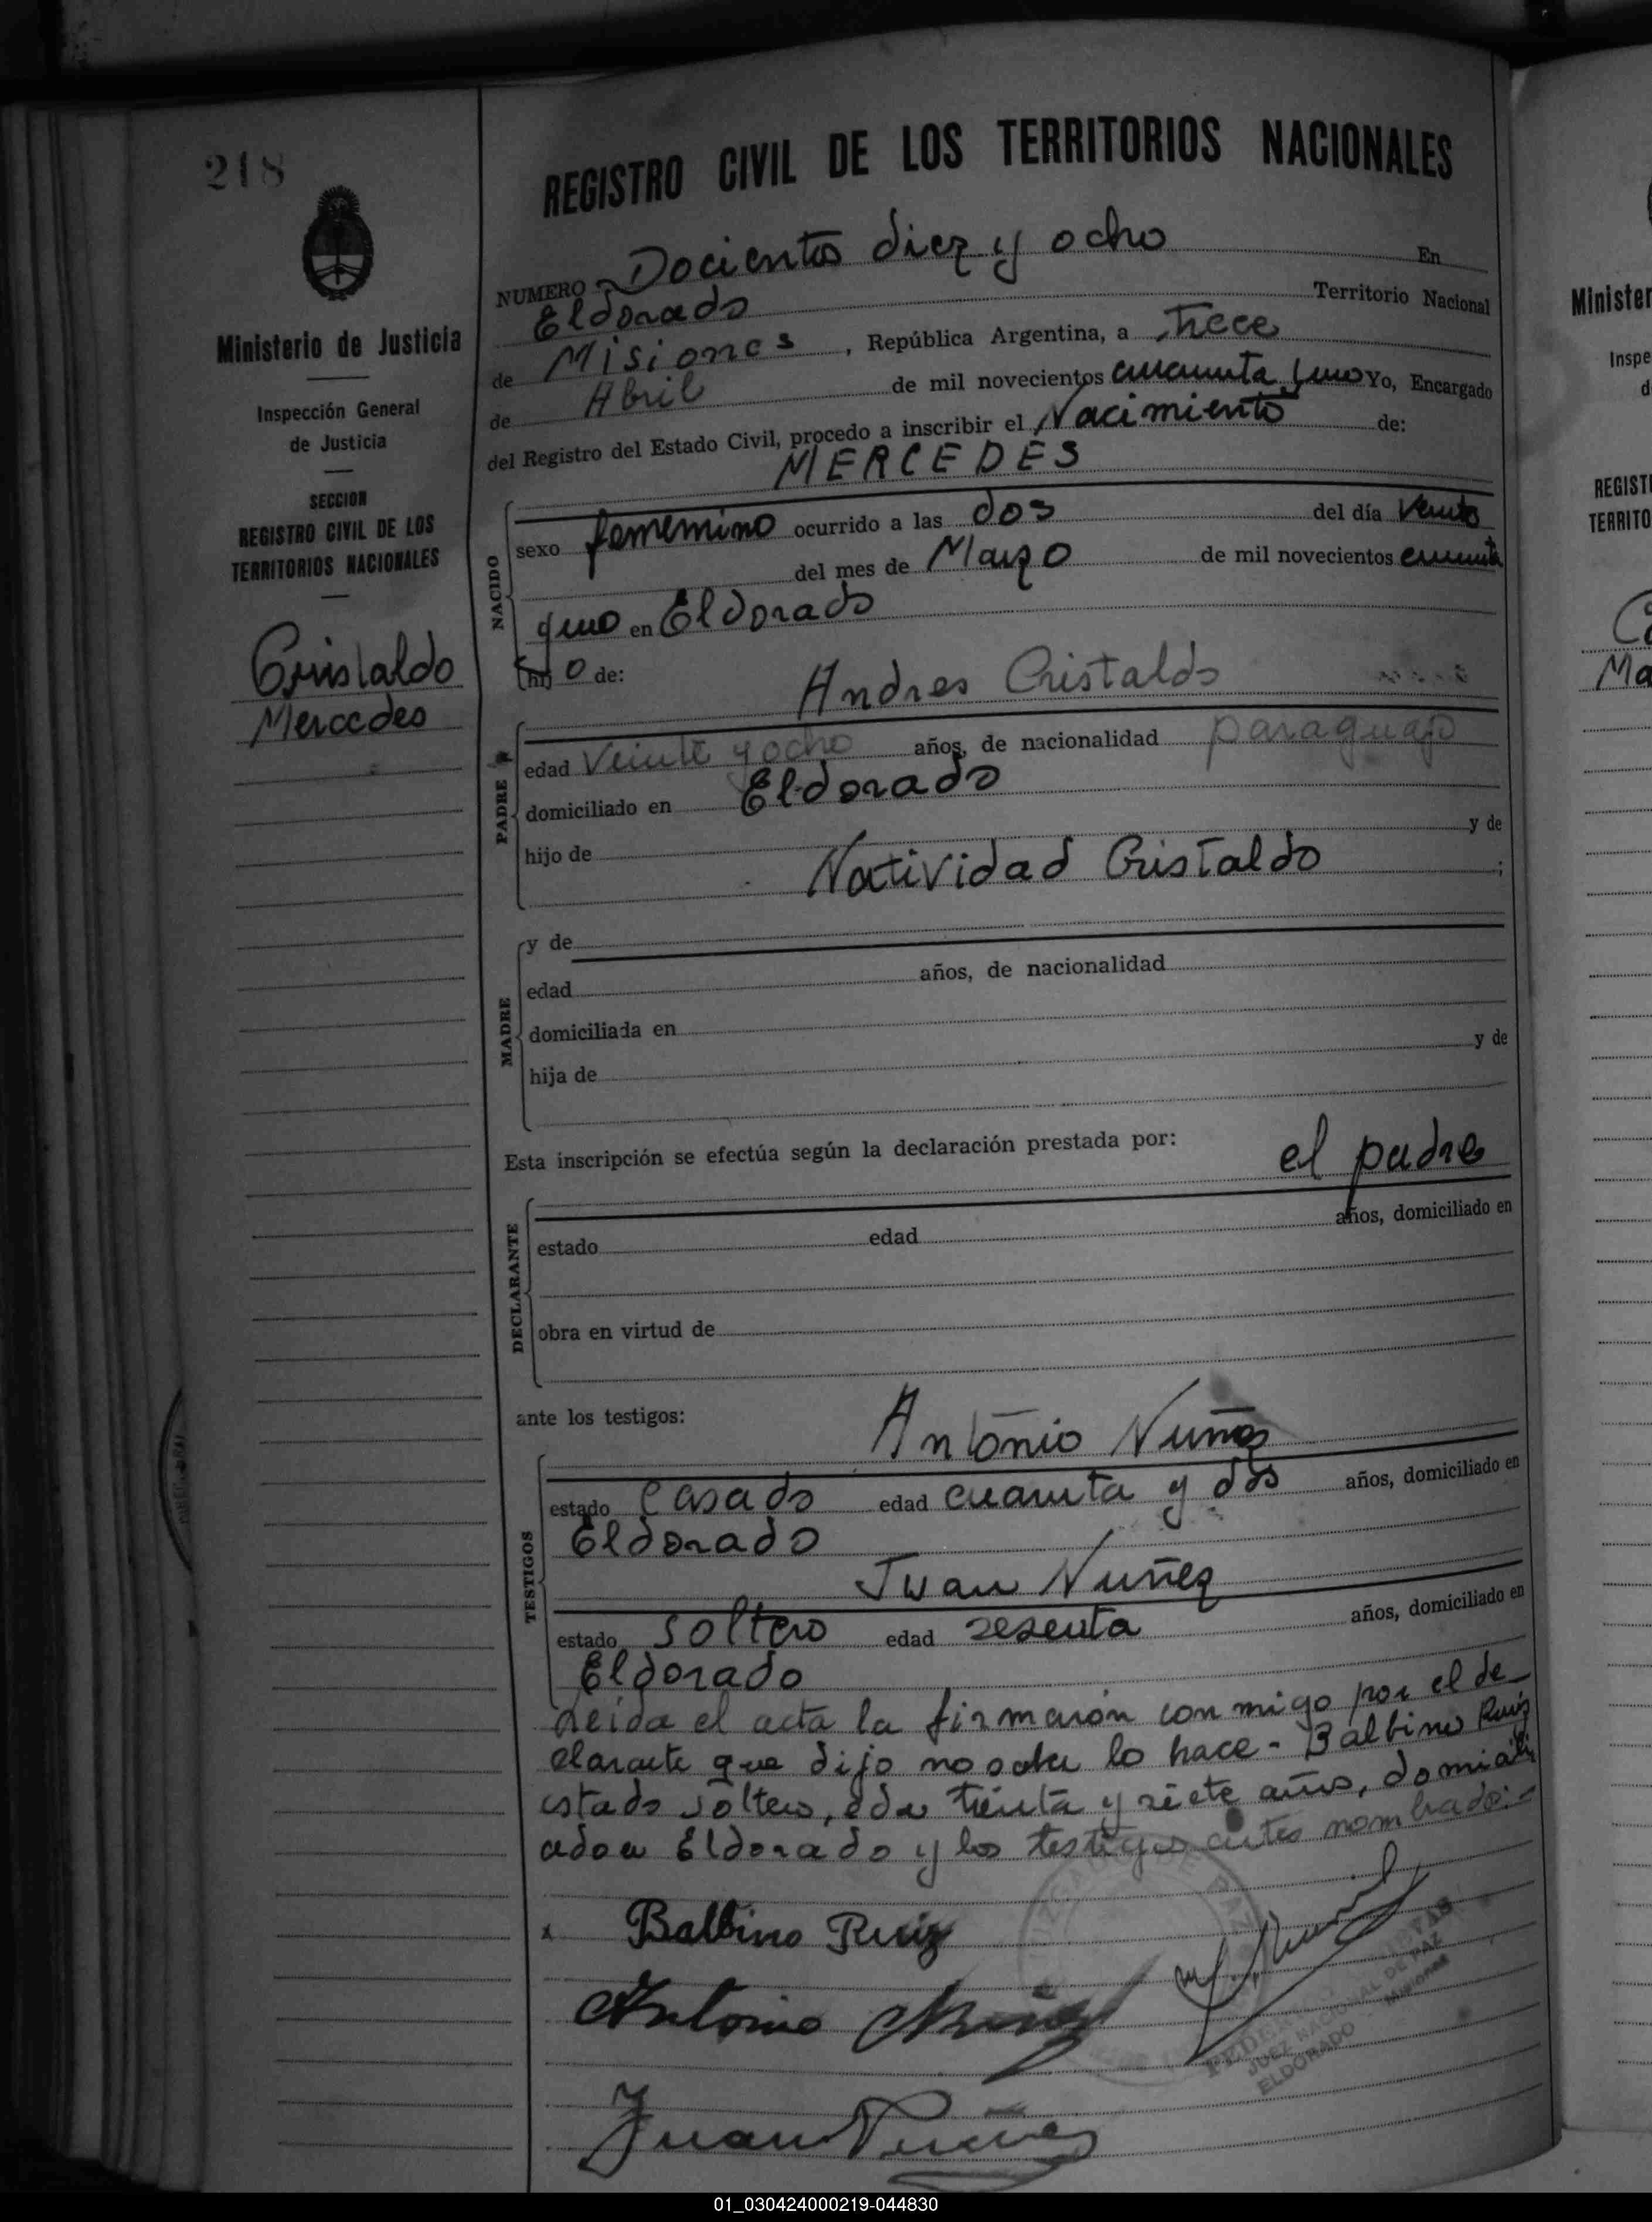 218
Ministerio de Justicia
Inspección General
de Justicia
SECCION
REGISTRO CIVIL DE LOS
TERRITORIOS NACIONALES
Cristaldo
Mercedes
REGISTRO CIVIL DE LOS TERRITORIOS NACIONALES
NUMERO Docientos diez y ocho En
Eldorado Territorio Nacional
de Misiones, República Argentina, a trece
de Abril de mil novecientos cuarenta y uno Yo, Encargado
del Registro del Estado Civil, procedo a inscribir el Nacimiento de:
MERCEDES
NACIDO
sexo femenino ocurrido a las dos del día
del mes de Marzo de mil novecientos cuarenta
y uno en Eldorado
hijo de:
Andres Cristaldo
PADRE
edad Veinte y ocho años, de nacionalidad paraguayo
domiciliado en Eldorado
hijo de y de
Natividad Cristaldo ;
MADRE
y de
edad años, de nacionalidad
domiciliada en
hija de y de
Esta inscripción se efectúa según la declaración prestada por:
el padre
DECLARANTE
estado edad años, domiciliado en
obra en virtud de
ante los testigos:
Antonio Nuñes
TESTIGOS
estado Casado edad cuarenta y dos años, domiciliado en
Eldorado
Juan Nuñez
estado soltero edad sesenta años, domiciliado en
Eldorado
Leida el acta la firmaron con migo por el de
clarante que dijo no saber lo hace - Balbino Ruiz
estado soltero, edad treinta y siete años, domicili
ado en Eldorado y los testigos antes nombrados.-
Balbino Ruiz
Antonio Nuñez
JUEZ NACIONAL DE PAZ
ELDORADO Misiones
Juan Nuñez
Minister
Inspe
d
REGISTI
TERRITO
Ma
01_030424000219-044830